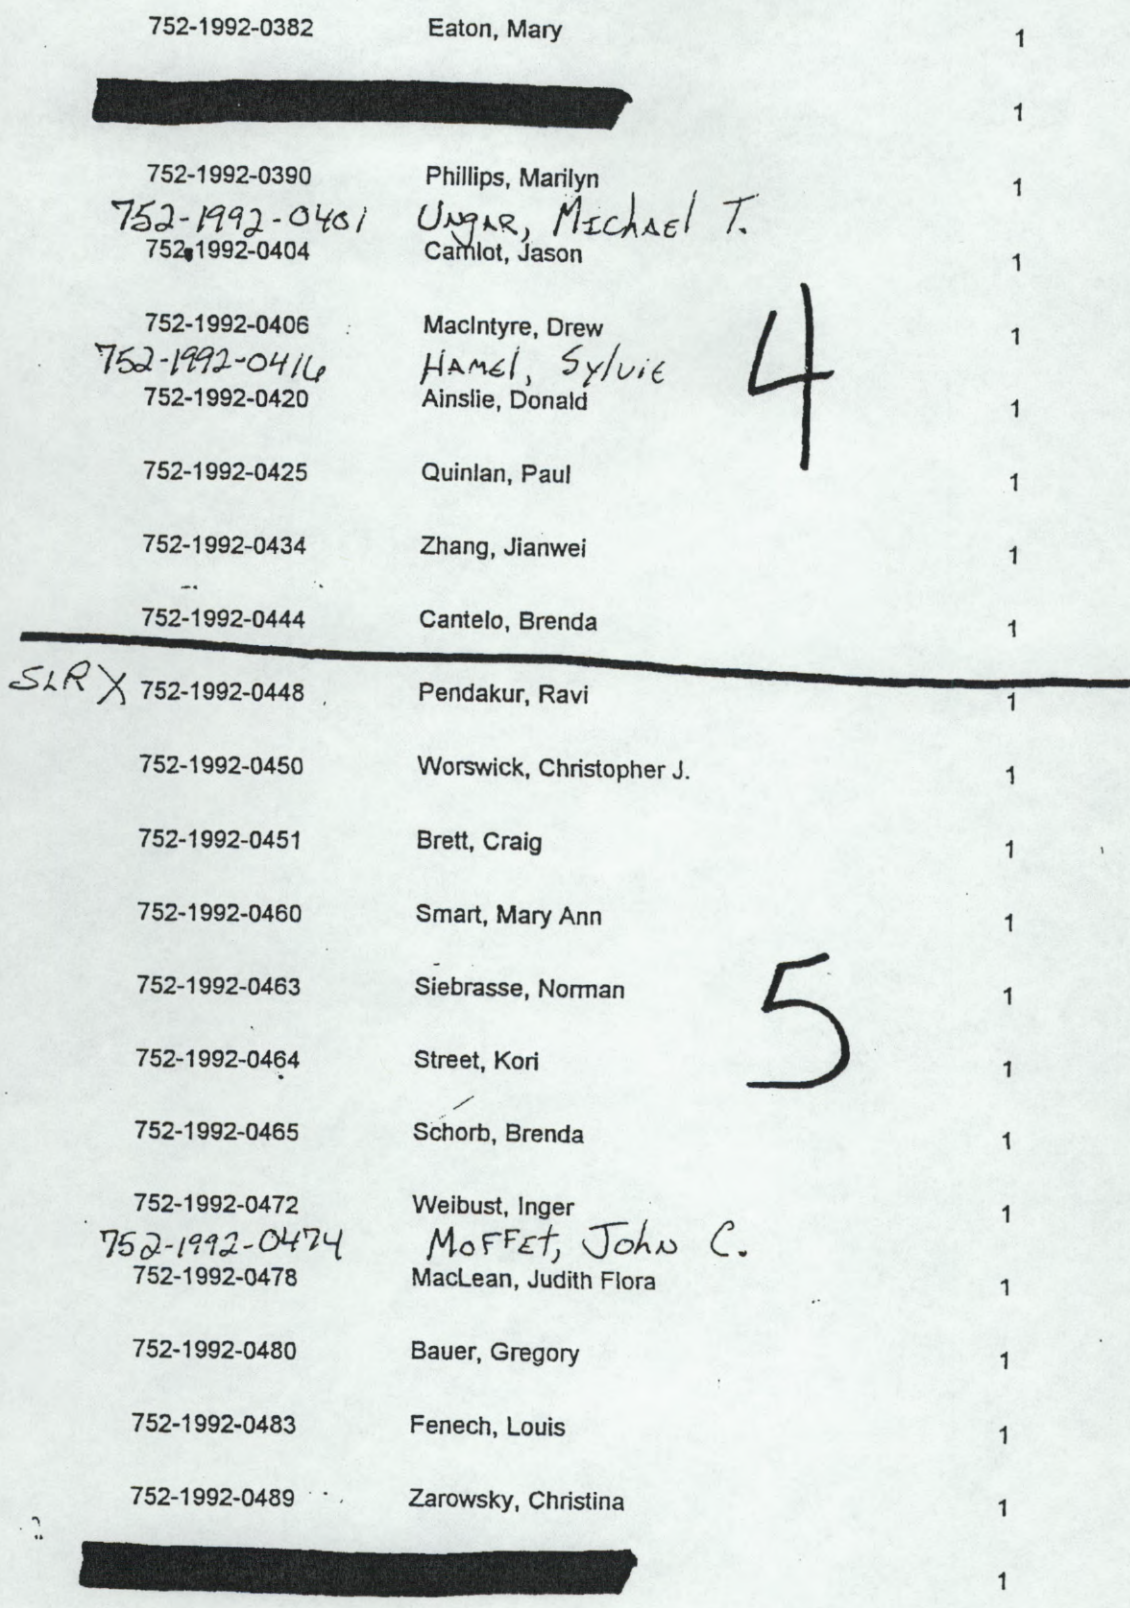 752-1992-0382 Eaton, Mary 1
1
752-1992-0390 Phillips, Marilyn 1
752-1992-0401 Ungar, Michael T.
752-1992-0404 Camlot, Jason 1
752-1992-0406 MacIntyre, Drew 1
752-1992-0416 Hamel, Sylvie
4
752-1992-0420 Ainslie, Donald 1
752-1992-0425 Quinlan, Paul 1
752-1992-0434 Zhang, Jianwei 1
752-1992-0444 Cantelo, Brenda 1
SLR X 752-1992-0448 Pendakur, Ravi 1
752-1992-0450 Worswick, Christopher J. 1
752-1992-0451 Brett, Craig 1
752-1992-0460 Smart, Mary Ann 1
752-1992-0463 Siebrasse, Norman 1
5
752-1992-0464 Street, Kori 1
752-1992-0465 Schorb, Brenda 1
752-1992-0472 Weibust, Inger 1
752-1992-0474 Moffet, John C.
752-1992-0478 MacLean, Judith Flora 1
752-1992-0480 Bauer, Gregory 1
752-1992-0483 Fenech, Louis 1
752-1992-0489 Zarowsky, Christina 1
1